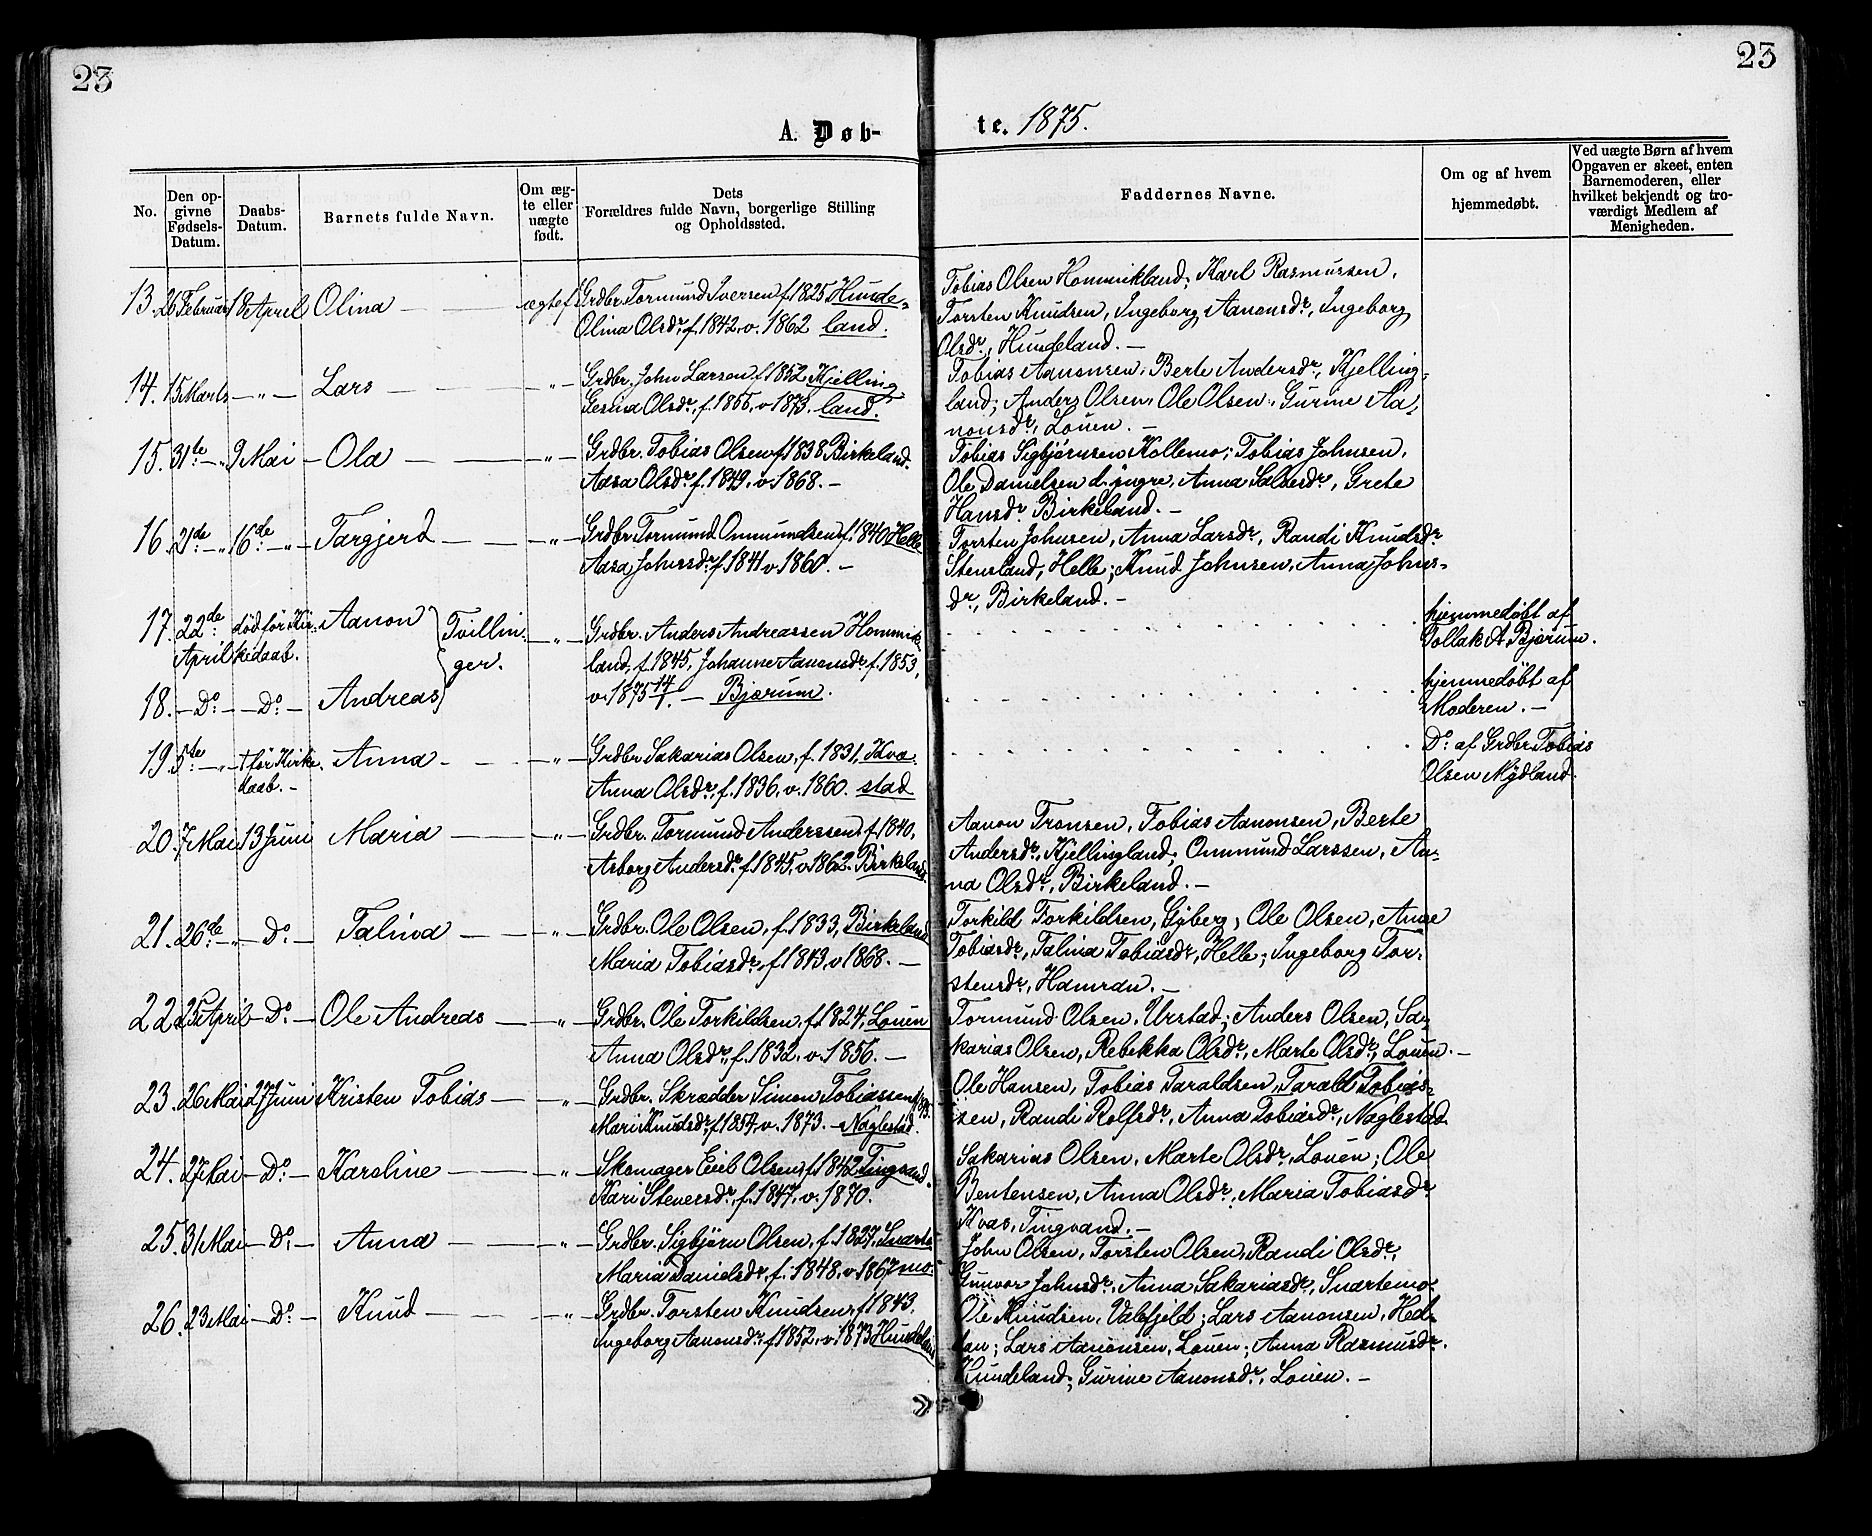 23
23
A. Døb-
te. 1875.
No.
Den op-
givne
Fødsels-
Datum.
Daabs-
Datum.
Barnets fulde Navn.
Om æg-
te eller
uægte
født.
Dets
Forældres fulde Navn, borgerlige Stilling
og Opholdssted.
Faddernes Navne.
Om og af hvem
hjemmedøbt.
Ved uægte Børn af hvem
Opgaven er skeet, enten
Barnemoderen, eller
hvilket bekjendt og tro-
værdigt Medlem af
Menigheden.
13. 26 Februar 18 April Olina — ægtef. Grdbr. Tormund Iversen f. 1825 Hunde-
Olina Olsdr. f. 1842, v. 1862 land.
Tobias Olsen Hommkland; Karl Rasmussen,
Torsten Knudsen, Ingeborg Aanonsdr., Ingeborg
Olsdr., Hundeland. —
14. 15 Marts — „ — Lars — „ — Grdbr. John Larsen f. 1852 Kjelling
Gesina Olsdr., f. 1855, v. 1873. land.
Tobias Aanonsen, Berte Andersdr., Kjelling-
land; Anders Olsen, Ole Olsen, Gurine Aa-
nonsdr., Louen. —
15. 31te — „ 9 Mai — Ola — „ — Grdbr. Tobias Olsen f. 1838 Birkeland.
Aasa Olsdr. f. 1849. v. 1868. —
Tobias Sigbjørnsen Kollemo; Tobias Johnsen,
Ole Danielsen d. yngre, Anna Salvesdr., Grete
Hansdr. Birkeland. —
16. 21de — „ 16de — „ — Targjerd — „ — Grdbr. Tormund Ommundsen f. 1840 Helle
Aasa Johnsdr. f. 1841 v. 1860. —
Torsten Johnsen, Anna Larsdr., Randi Knudsdr.
Stensland, Helle; Knud Johnsen, Anna Johns-
dr., Birkeland. —
17. 22de død før Kir- Aanon Tvillin- — „ — Grdbr. Anders Andreassen Hommk-
April kedaab. ger. land, f. 1845, Johanne Aanonsdr. f. 1853,
hjemmedøbt af
Tollak A. Bjørum.
18. — Do — Do — Andreas v. 1875 14/1. — Bjørum.
hjemmedøbt af
Moderen. —
19. 5te — „ — † før Kirke- Anna — „ — Grdbr. Sakarias Olsen, f. 1831, Kva-
daab. — Anna Olsdr., f. 1836, v. 1860. stad
Do. af Grdbr Tobias
Olsen Mydland.
20. 7 Mai 13 Juni Maria — „ — Grdbr. Tormund Anderssen, f. 1840,
Asborg Andersdr. f. 1845, v. 1862. Birkeland
Aanon Tronsen, Tobias Aanonsen, Berte
Andersdr., Kjellingland; Ommund Larssen, An-
na Olsdr., Birkeland. —
21. 26de — „ — Do. — Talina — „ — Grdbr. Ole Olsen, f. 1833, Birkeland
Maria Tobiasdr., f. 1843, v. 1868. —
Torkild Torkildsen, Gyberg; Ole Olsen, Anne
Tobiasdr., Talina Tobiasdr., Helle; Ingeborg Tor-
stensdr., Hamran. —
22. 25 April — Do. — Ole Andreas — „ — Grdbr. Ole Torkildsen, f. 1824, Louen
Anna Olsdr., f. 1832. v. 1856. —
Tormund Olsen, Urstad; Anders Olsen, Sa-
karias Olsen, Rebekka Olsdr., Marte Olsdr., Louen. —
23. 26 Mai 27 Juni Kristen Tobias — „ — Grdbr. Skrædder Simon Tobiassen
Mari Knudsdr., f. 1854, v. 1873. — Naglestad.
Ole Hansen, Tobias Taraldsen, Tarald Tobias-
sen, Randi Rolfsdr., Anna Tobiasdr., Naglestad.
24. 27 Mai — Do. — Karoline — „ — Skomager Olsen f. 1842 Tingvand.
Kari Stenersdr., f. 1847, v. 1870.
Sakarias Olsen, Marte Olsdr., Louen; Ole
Bentensen, Anna Olsdr., Maria Tobiasdr.
Kvas, Tingvand. —
25. 31 Mai — Do. — Anna — „ — Grdbr. Sigbjørn Olsen, f. 1827. Snarte-
Maria Danielsdr., f. 1848, v. 1867 mo.
John Olsen, Torsten Olsen, Randi Olsdr.,
Gunvor Johnsdr., Anna Sakariasdr., Snartemo.
26. 23 Mai — Do. — Knud — „ — Grdbr. Torsten Knudsen, f. 1843,
Ingeborg Aanonsdr., f. 1852, v. 1873 Hundeland
Ole Knudsen, Valefjeld; Lars Aanonsen,
Lars Aanonsen, Louen; Anna Rasmusdr.
Hundeland; Gurine Aanonsdr., Louen. —